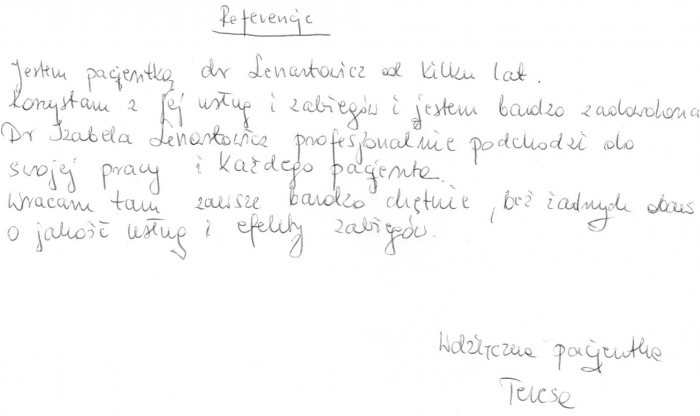 Referencje
Jestem pacjentką dr Lenartowicz od kilku lat.
Korzystam z jej usług i zabiegów i jestem bardzo zadowolona
Dr Izabela Lenartowicz profesjonalnie podchodzi do
swojej pracy i każdego pacjenta.
Wracam tam zawsze bardzo chętnie, bez żadnych obaw
o jakość usług i efekty zabiegów.
Wdzięczna pacjentka
Teresa